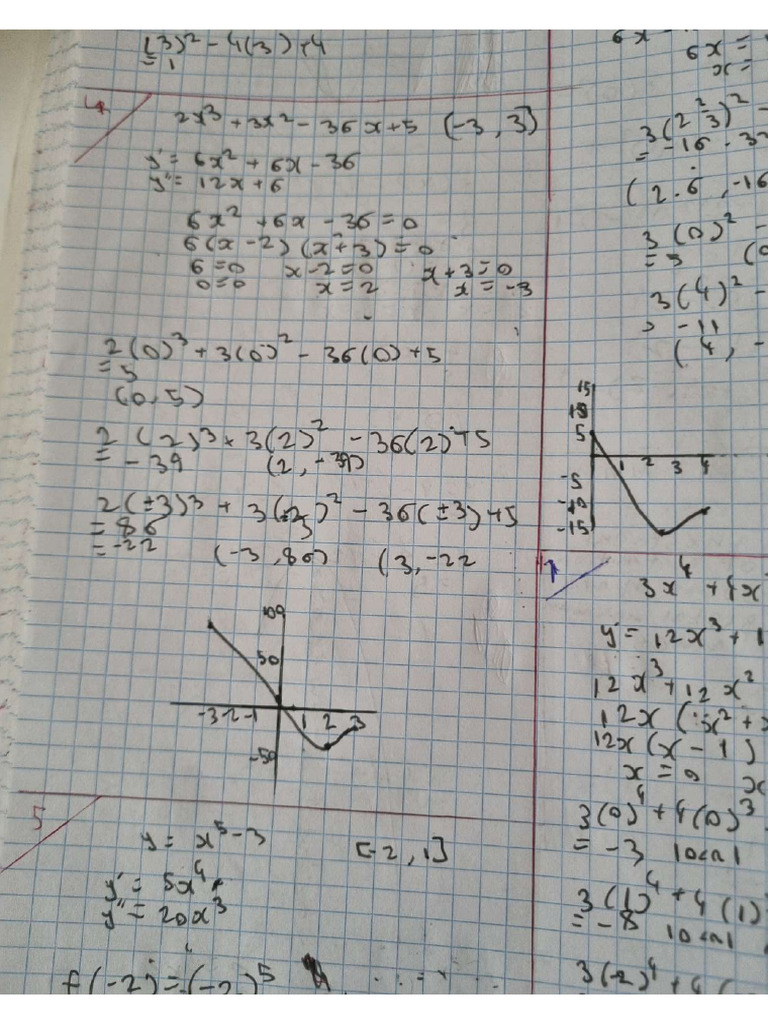 (3)² - 4(3) + 4
= 1
4
2x³ + 3x² - 36x + 5 [-3, 3]
y' = 6x² + 6x - 36
y'' = 12x + 6
6x² + 6x - 36 = 0
6(x - 2)(x + 3) = 0
6 = 0 x - 2 = 0 x + 3 = 0
0 = 0 x = 2 x = -3
2(0)³ + 3(0)² - 36(0) + 5
= 5
(0, 5)
2(2)³ + 3(2)² - 36(2) + 5
= -39 (2, -39)
2(±3)³ + 3(±3)² - 36(±3) + 5
= 86
= -22 (-3, 86) (3, -22
100
50
-3 -2 -1 1 2 3
-50
5
y = x⁵ - 3 [-2, 1]
y' = 5x⁴
y'' = 20x³
f(-2) = (-2)⁵
6x
6x =
x =
= -16
(2.6, -16
3(0)² -
= 5 (0
3(4)² -
-11
(4, -
15
10
5
1 2 3 4
-5
-10
-15
1
3x⁴ + 4x
y' = 12x³ + 1
12x³ + 12x²
12x(x²
12x(x - 1)
x = 0 x
3(0)⁴ + 4(0)³
= -3 local
3(1)⁴ + 4(1)
= -8 local
3(-2)⁴ + 4(